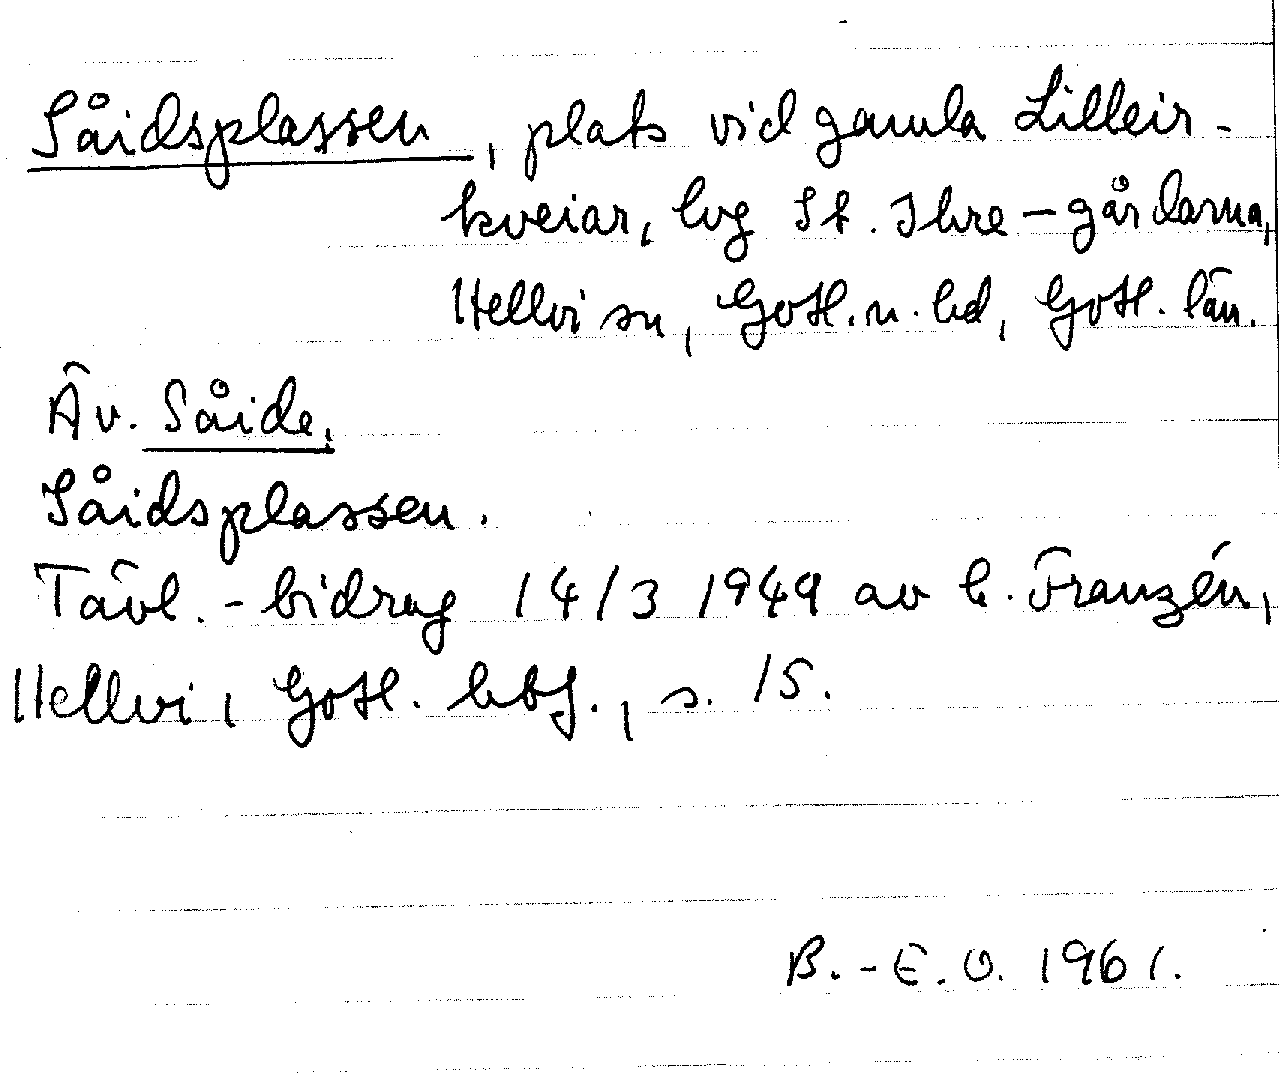 Såidsplassen, plats vid gamla Lilleir-
kveiar, hvg St. Ihre-gårdarna,
Hellvi sn, Gotl. n. hd, Gotl. län.
Äv. Såide.
Såidsplassen.
Tävl.-bidrag 14/3 1949 av h. Franzén,
Hellvi, Gotl. hbf., s. 15.
B.-E. O. 1961.